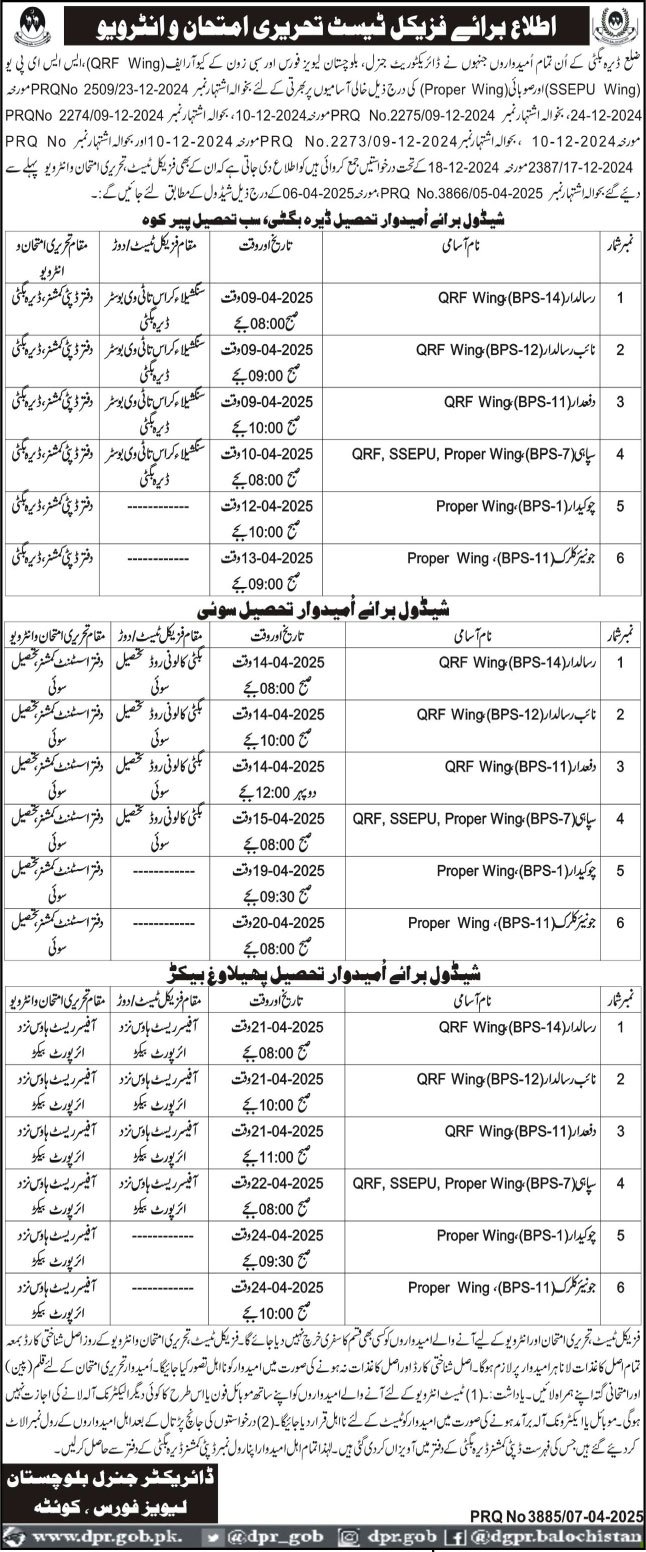 اطلاع برائے فزیکل ٹیسٹ تحریری امتحان و انٹرویو
ضلع ڈیرہ بگٹی کے اُن تمام اُمیدواروں جنہوں نے ڈائریکٹوریٹ جنرل، بلوچستان لیویز فورس اور سبی زون کے کیو آر ایف (QRF Wing)، ایس ایس ای پی یو
(SSEPU Wing) اور صوبائی (Proper Wing) کی درج ذیل خالی آسامیوں پر بھرتی کے لئے بحوالہ اشتہار نمبر PRQNo 2509/23-12-2024 مورخہ
24-12-2024، بحوالہ اشتہار نمبر PRQ No.2275/09-12-2024 مورخہ 10-12-2024، بحوالہ اشتہار نمبر PRQNo 2274/09-12-2024
مورخہ 10-12-2024، بحوالہ اشتہار نمبر PRQ No.2273/09-12-2024 مورخہ 10-12-2024 اور بحوالہ اشتہار نمبر PRQ No
2387/17-12-2024 مورخہ 18-12-2024 کے تحت درخواستیں جمع کروائی ہیں کو اطلاع دی جاتی ہے کہ ان کے بھی فزیکل ٹیسٹ تحریری امتحان و انٹرویو پہلے سے
دیئے گئے بحوالہ اشتہار نمبر PRQ No.3866/05-04-2025 مورخہ 06-04-2025 کے درج ذیل شیڈول کے مطابق لئے جائیں گے:۔
شیڈول برائے اُمیدوار تحصیل ڈیرہ بگٹی، سب تحصیل پیر کوہ
نمبر شمار نام آسامی تاریخ اور وقت مقام فزیکل ٹیسٹ/دوڑ مقام تحریری امتحان و
انٹرویو
1 رسالدار (BPS-14)، QRF Wing 09-04-2025 وقت سنگسیلاء کراس تا ٹی وی بوسٹر دفتر ڈپٹی کمشنر، ڈیرہ بگٹی
صبح 08:00 بجے ڈیرہ بگٹی
2 نائب رسالدار (BPS-12)، QRF Wing 09-04-2025 وقت سنگسیلاء کراس تا ٹی وی بوسٹر دفتر ڈپٹی کمشنر، ڈیرہ بگٹی
صبح 09:00 بجے ڈیرہ بگٹی
3 دفعدار (BPS-11)، QRF Wing 09-04-2025 وقت سنگسیلاء کراس تا ٹی وی بوسٹر دفتر ڈپٹی کمشنر، ڈیرہ بگٹی
صبح 10:00 بجے ڈیرہ بگٹی
4 سپاہی (BPS-7)، QRF, SSEPU, Proper Wing 10-04-2025 وقت سنگسیلاء کراس تا ٹی وی بوسٹر دفتر ڈپٹی کمشنر، ڈیرہ بگٹی
صبح 08:00 بجے ڈیرہ بگٹی
5 چوکیدار (BPS-1)، Proper Wing 12-04-2025 وقت ------------ دفتر ڈپٹی کمشنر، ڈیرہ بگٹی
صبح 10:00 بجے
6 جونیئر کلرک (BPS-11)، Proper Wing 13-04-2025 وقت ------------ دفتر ڈپٹی کمشنر، ڈیرہ بگٹی
صبح 09:00 بجے
شیڈول برائے اُمیدوار تحصیل سوئی
نمبر شمار نام آسامی تاریخ اور وقت مقام فزیکل ٹیسٹ/دوڑ مقام تحریری امتحان و انٹرویو
1 رسالدار (BPS-14)، QRF Wing 14-04-2025 وقت بگٹی کالونی روڈ تحصیل دفتر اسسٹنٹ کمشنر، تحصیل
صبح 08:00 بجے سوئی سوئی
2 نائب رسالدار (BPS-12)، QRF Wing 14-04-2025 وقت بگٹی کالونی روڈ تحصیل دفتر اسسٹنٹ کمشنر، تحصیل
صبح 10:00 بجے سوئی سوئی
3 دفعدار (BPS-11)، QRF Wing 14-04-2025 وقت بگٹی کالونی روڈ تحصیل دفتر اسسٹنٹ کمشنر، تحصیل
دوپہر 12:00 بجے سوئی سوئی
4 سپاہی (BPS-7)، QRF, SSEPU, Proper Wing 15-04-2025 وقت بگٹی کالونی روڈ تحصیل دفتر اسسٹنٹ کمشنر، تحصیل
صبح 08:00 بجے سوئی سوئی
5 چوکیدار (BPS-1)، Proper Wing 19-04-2025 وقت ------------ دفتر اسسٹنٹ کمشنر، تحصیل
صبح 09:30 بجے سوئی
6 جونیئر کلرک (BPS-11)، Proper Wing 20-04-2025 وقت ------------ دفتر اسسٹنٹ کمشنر، تحصیل
صبح 08:00 بجے سوئی
شیڈول برائے اُمیدوار تحصیل پھیلاوغ بیکڑ
نمبر شمار نام آسامی تاریخ اور وقت مقام فزیکل ٹیسٹ/دوڑ مقام تحریری امتحان و انٹرویو
1 رسالدار (BPS-14)، QRF Wing 21-04-2025 وقت آفیسر ریسٹ ہاؤس نزد آفیسر ریسٹ ہاؤس نزد
صبح 08:00 بجے ائرپورٹ بیکڑ ائرپورٹ بیکڑ
2 نائب رسالدار (BPS-12)، QRF Wing 21-04-2025 وقت آفیسر ریسٹ ہاؤس نزد آفیسر ریسٹ ہاؤس نزد
صبح 10:00 بجے ائرپورٹ بیکڑ ائرپورٹ بیکڑ
3 دفعدار (BPS-11)، QRF Wing 21-04-2025 وقت آفیسر ریسٹ ہاؤس نزد آفیسر ریسٹ ہاؤس نزد
صبح 11:00 بجے ائرپورٹ بیکڑ ائرپورٹ بیکڑ
4 سپاہی (BPS-7)، QRF, SSEPU, Proper Wing 22-04-2025 وقت آفیسر ریسٹ ہاؤس نزد آفیسر ریسٹ ہاؤس نزد
صبح 08:00 بجے ائرپورٹ بیکڑ ائرپورٹ بیکڑ
5 چوکیدار (BPS-1)، Proper Wing 24-04-2025 وقت ------------ آفیسر ریسٹ ہاؤس نزد
صبح 09:30 بجے ائرپورٹ بیکڑ
6 جونیئر کلرک (BPS-11)، Proper Wing 24-04-2025 وقت ------------ آفیسر ریسٹ ہاؤس نزد
صبح 10:00 بجے ائرپورٹ بیکڑ
فزیکل ٹیسٹ تحریری امتحان اور انٹرویو کے لیے آنے والے امیدواروں کو کسی بھی قسم کا سفری خرچ نہیں دیا جائے گا۔ فزیکل ٹیسٹ تحریری امتحان و انٹرویو کے روز اصل شناختی کارڈ بمعہ
تمام اصل کاغذات لانا ہر امیدوار پر لازم ہوگا۔ اصل شناختی کارڈ اور اصل کاغذات نہ ہونے کی صورت میں امیدوار کو نا اہل تصور کیا جائیگا۔ اُمیدوار تحریری امتحان کے لئے قلم (پین)
اور امتحانی گتہ اپنے ہمراہ لائیں۔ یاداشت:۔ (1) ٹیسٹ انٹرویو کے لئے آنے والے امیدواروں کو اپنے ساتھ موبائل فون یا اس طرح کا کوئی دیگر الیکٹرانک آلہ لانے کی اجازت نہیں
ہوگی۔ موبائل یا الیکٹرونک آلہ برآمد ہونے کی صورت میں امیدوار کو ٹیسٹ کے لئے نا اہل قرار دیا جائیگا۔ (2) درخواستوں کی جانچ پڑتال کے بعد اہل امیدواروں کے رول نمبر الاٹ
کر دیئے گئے ہیں جس کی فہرست ڈپٹی کمشنر ڈیرہ بگٹی کے دفتر میں آویزاں کر دی گئی ہیں۔ لہٰذا تمام اہل امیدوار اپنا رول نمبر ڈپٹی کمشنر ڈیرہ بگٹی کے دفتر سے حاصل کر لیں۔
ڈائریکٹر جنرل بلوچستان
لیویز فورس، کوئٹہ
PRQ No 3885/07-04-2025
www.dpr.gob.pk. @dpr_gob dpr.gob @dgpr.balochistan